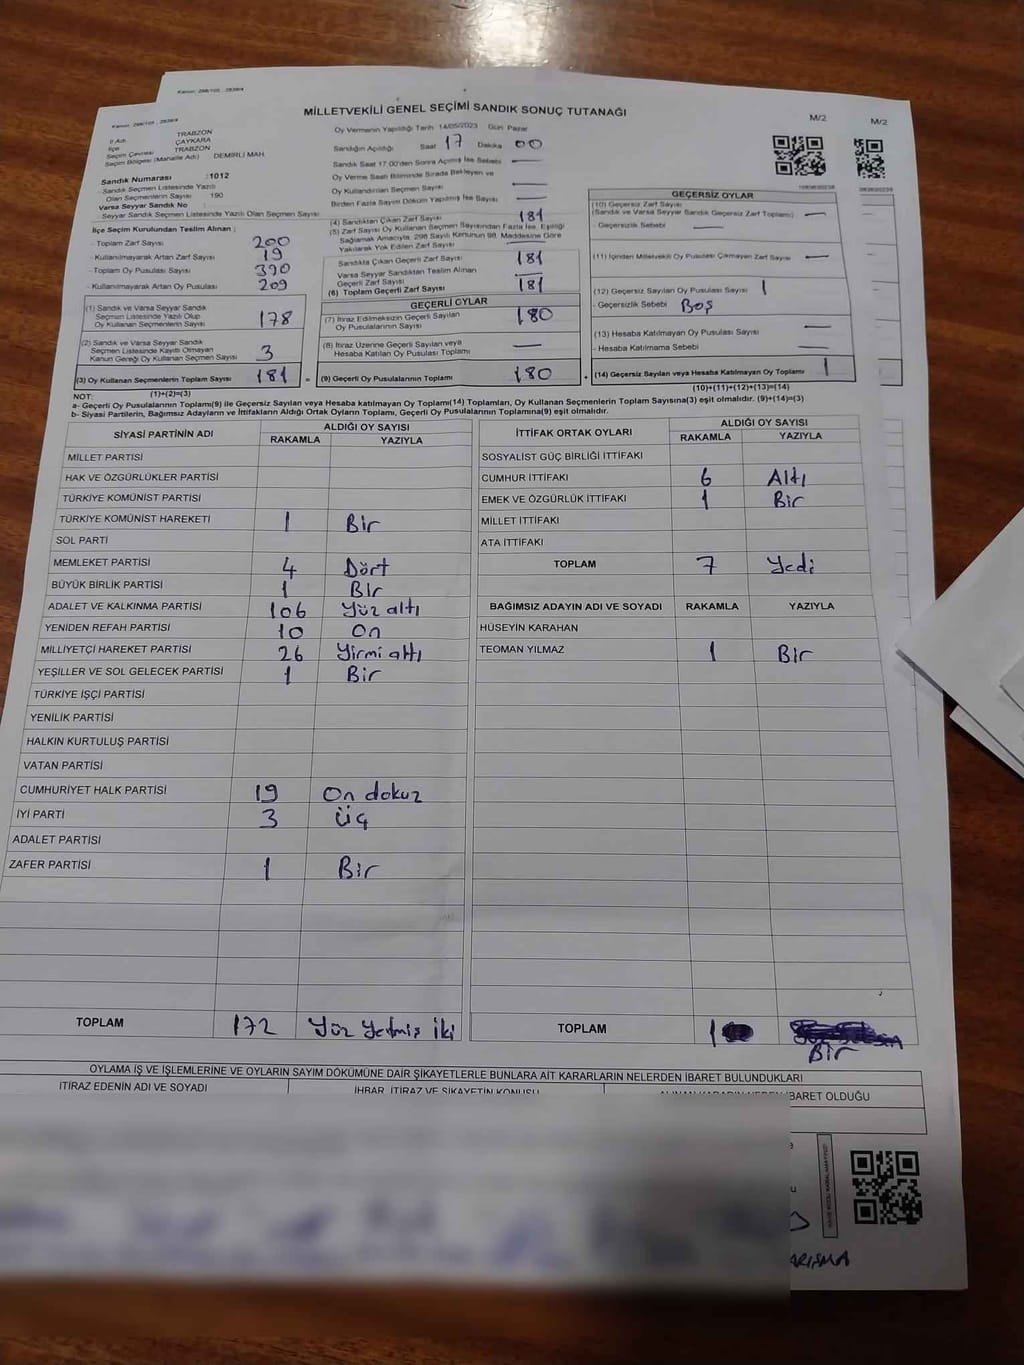 Kanun: 298/105 , 2839/4
Kanun: 298/105 , 2839/4
MİLLETVEKİLİ GENEL SEÇİMİ SANDIK SONUÇ TUTANAĞI
M/2
M/2
İl Adı TRABZON
İlçe ÇAYKARA
Seçim Çevresi TRABZON
Seçim Bölgesi (Mahalle Adı) DEMİRLİ MAH.
Sandık Numarası :1012
- Sandık Seçmen Listesinde Yazılı
Olan Seçmenlerin Sayısı 190
Varsa Seyyar Sandık No :
- Seyyar Sandık Seçmen Listesinde Yazılı Olan Seçmen Sayısı
İlçe Seçim Kurulundan Teslim Alınan :
- Toplam Zarf Sayısı 200
- Kullanılmayarak Artan Zarf Sayısı 19
- Toplam Oy Pusulası Sayısı 390
- Kullanılmayarak Artan Oy Pusulası 209
(1) Sandık ve Varsa Seyyar Sandık
Seçmen Listesinde Yazılı Olup
Oy Kullanan Seçmenlerin Sayısı 178
(2) Sandık ve Varsa Seyyar Sandık
Seçmen Listesinde Kayıtlı Olmayan
Kanun Gereği Oy Kullanan Seçmen Sayısı 3
(3) Oy Kullanan Seçmenlerin Toplam Sayısı 181
(1)+(2)=(3)
Oy Vermenin Yapıldığı Tarih 14/05/2023 Gün Pazar
Sandığın Açıldığı Saat 17 Dakika 00
Sandık Saat 17:00'den Sonra Açılmış İse Sebebi —
Oy Verme Saati Bitiminde Sırada Bekleyen ve
Oy Kullandırılan Seçmen Sayısı —
Birden Fazla Sayım Döküm Yapılmış İse Sayısı —
(4) Sandıktan Çıkan Zarf Sayısı 181
(5) Zarf Sayısı Oy Kullanan Seçmen Sayısından Fazla İse, Eşitliği
Sağlamak Amacıyla, 298 Sayılı Kanunun 98. Maddesine Göre
Yakılarak Yok Edilen Zarf Sayısı —
Sandıkta Çıkan Geçerli Zarf Sayısı 181
Varsa Seyyar Sandıktan Teslim Alınan
Geçerli Zarf Sayısı —
(6) Toplam Geçerli Zarf Sayısı 181
GEÇERLİ OYLAR
(7) İtiraz Edilmeksizin Geçerli Sayılan
Oy Pusulalarının Sayısı 180
(8) İtiraz Üzerine Geçerli Sayılan veya
Hesaba Katılan Oy Pusulası Toplamı —
= (9) Geçerli Oy Pusulalarının Toplamı 180
GEÇERSİZ OYLAR
(10) Geçersiz Zarf Sayısı
(Sandık ve Varsa Seyyar Sandık Geçersiz Zarf Toplamı) —
- Geçersizlik Sebebi —
(11) İçinden Milletvekili Oy Pusulası Çıkmayan Zarf Sayısı —
(12) Geçersiz Sayılan Oy Pusulası Sayısı 1
- Geçersizlik Sebebi Boş
(13) Hesaba Katılmayan Oy Pusulası Sayısı —
- Hesaba Katılmama Sebebi —
+ (14) Geçersiz Sayılan veya Hesaba Katılmayan Oy Toplamı 1
(10)+(11)+(12)+(13)=(14)
NOT:
a- Geçerli Oy Pusulalarının Toplamı(9) ile Geçersiz Sayılan veya Hesaba Katılmayan Oy Toplamı(14) Toplamları, Oy Kullanan Seçmenlerin Toplam Sayısına(3) eşit olmalıdır. (9)+(14)=(3)
b- Siyasi Partilerin, Bağımsız Adayların ve İttifakların Aldığı Ortak Oyların Toplamı, Geçerli Oy Pusulalarının Toplamına(9) eşit olmalıdır.
SİYASİ PARTİNİN ADI ALDIĞI OY SAYISI
RAKAMLA YAZIYLA
MİLLET PARTİSİ
HAK VE ÖZGÜRLÜKLER PARTİSİ
TÜRKİYE KOMÜNİST PARTİSİ
TÜRKİYE KOMÜNİST HAREKETİ 1 Bir
SOL PARTİ
MEMLEKET PARTİSİ 4 Dört
BÜYÜK BİRLİK PARTİSİ 1 Bir
ADALET VE KALKINMA PARTİSİ 106 Yüz altı
YENİDEN REFAH PARTİSİ 10 On
MİLLİYETÇİ HAREKET PARTİSİ 26 Yirmi altı
YEŞİLLER VE SOL GELECEK PARTİSİ 1 Bir
TÜRKİYE İŞÇİ PARTİSİ
YENİLİK PARTİSİ
HALKIN KURTULUŞ PARTİSİ
VATAN PARTİSİ
CUMHURİYET HALK PARTİSİ 19 On dokuz
İYİ PARTİ 3 üç
ADALET PARTİSİ
ZAFER PARTİSİ 1 Bir
TOPLAM 172 Yüz Yetmiş iki
İTTİFAK ORTAK OYLARI ALDIĞI OY SAYISI
RAKAMLA YAZIYLA
SOSYALİST GÜÇ BİRLİĞİ İTTİFAKI
CUMHUR İTTİFAKI 6 Altı
EMEK VE ÖZGÜRLÜK İTTİFAKI 1 Bir
MİLLET İTTİFAKI
ATA İTTİFAKI
TOPLAM 7 Yedi
BAĞIMSIZ ADAYIN ADI VE SOYADI RAKAMLA YAZIYLA
HÜSEYİN KARAHAN
TEOMAN YILMAZ 1 Bir
TOPLAM 1
Bir
OYLAMA İŞ VE İŞLEMLERİNE VE OYLARIN SAYIM DÖKÜMÜNE DAİR ŞİKAYETLERLE BUNLARA AİT KARARLARIN NELERDEN İBARET BULUNDUKLARI
İTİRAZ EDENİN ADI VE SOYADI İHBAR, İTİRAZ VE ŞİKAYETİN KONUSU ALINAN KARARIN NEDEN İBARET OLDUĞU